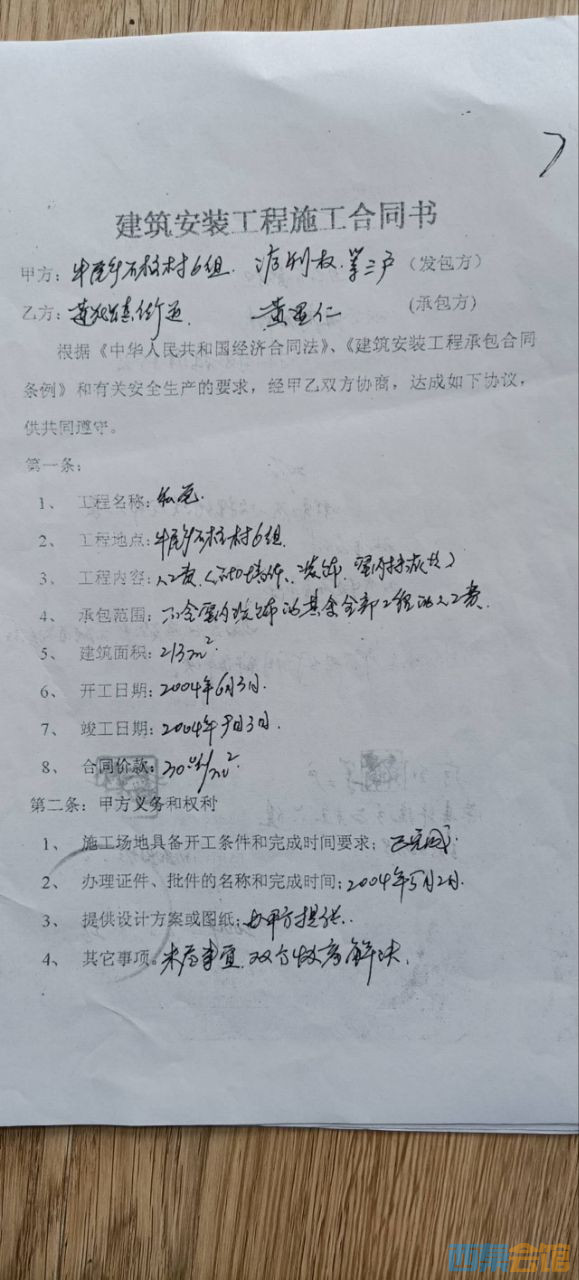 建筑安装工程施工合同书
甲方：牛尾乡石柱村6组. 权. 等三户（发包方）
乙方： 黄 仁 （承包方）
根据《中华人民共和国经济合同法》、《建筑安装工程承包合同
条例》和有关安全生产的要求，经甲乙双方协商，达成如下协议，
供共同遵守。
第一条：
1、 工程名称：私宅.
2、 工程地点：牛尾乡石柱村6组.
3、 工程内容：人工费
4、 承包范围：不含室内装饰的其余全部工程的人工费.
5、 建筑面积：213m².
6、 开工日期：2004年6月3日.
7、 竣工日期：2004年9月3日.
8、 合同价款： /m²
第二条：甲方义务和权利
1、 施工场地具备开工条件和完成时间要求：已完成.
2、 办理证件、批件的名称和完成时间：2004年5月2日.
3、 提供设计方案或图纸：由甲方提供.
4、 其它事项。未尽事宜.双方 解决.
西泵会馆